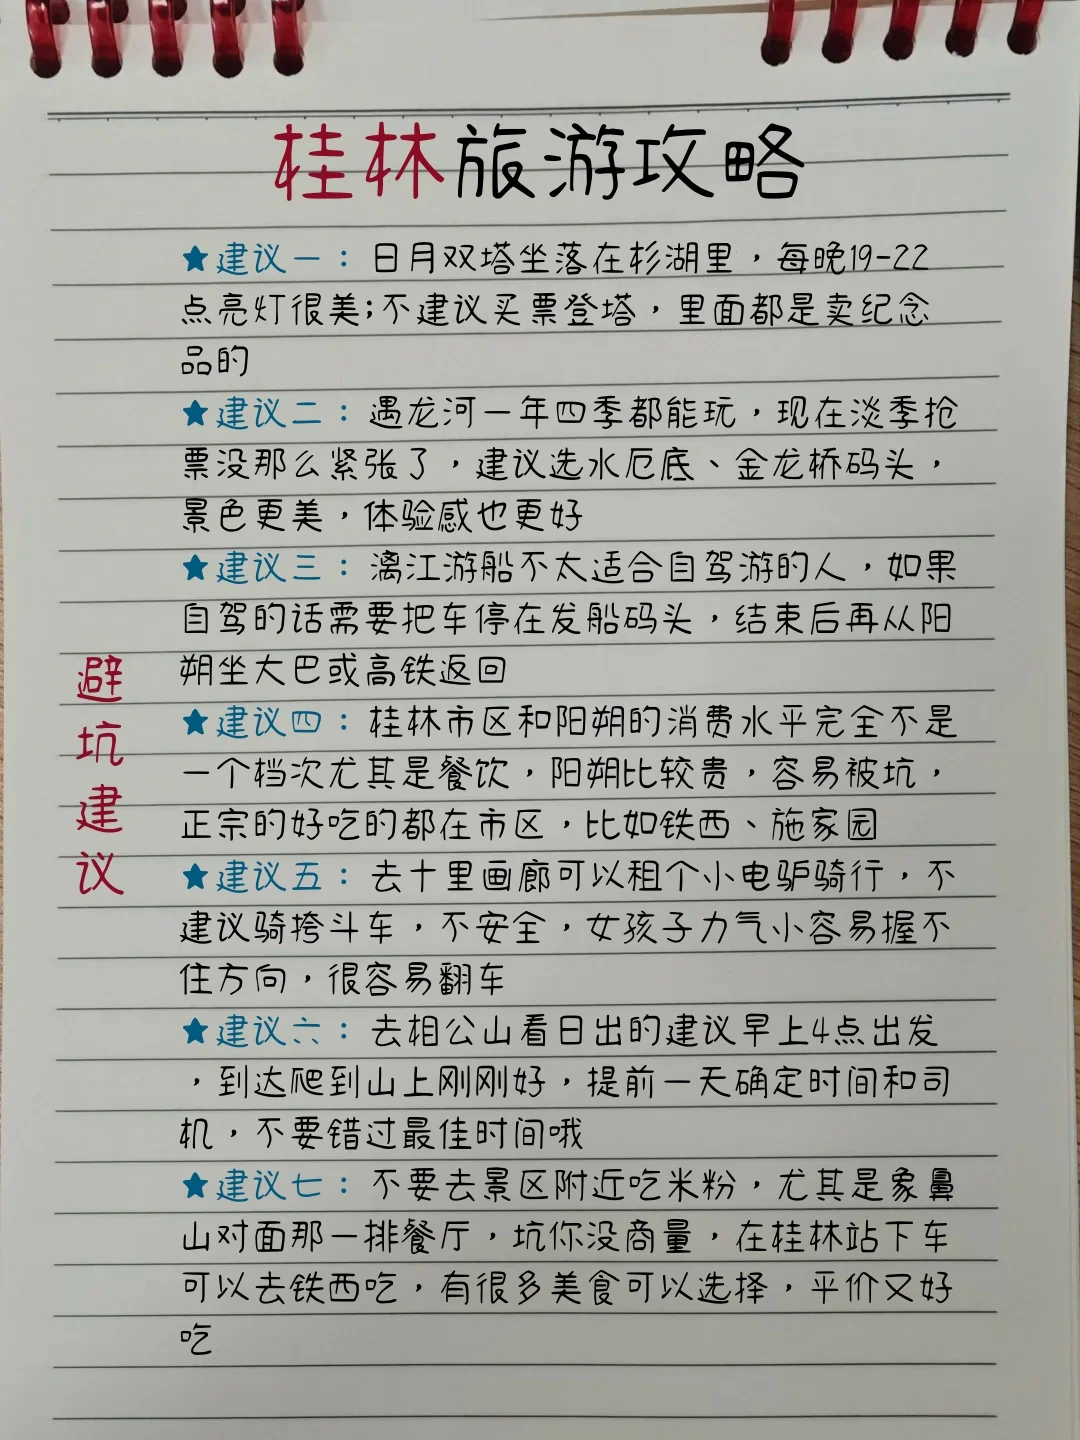 桂林旅游攻略
★建议一：日月双塔坐落在杉湖里，每晚19-22
点亮灯很美;不建议买票登塔，里面都是卖纪念
品的
★建议二：遇龙河一年四季都能玩，现在淡季抢
票没那么紧张了，建议选水厄底、金龙桥码头，
景色更美，体验感也更好
★建议三：漓江游船不太适合自驾游的人，如果
自驾的话需要把车停在发船码头，结束后再从阳
朔坐大巴或高铁返回
★建议四：桂林市区和阳朔的消费水平完全不是
一个档次尤其是餐饮，阳朔比较贵，容易被坑，
正宗的好吃的都在市区，比如铁西、施家园
★建议五：去十里画廊可以租个小电驴骑行，不
建议骑挎斗车，不安全，女孩子力气小容易握不
住方向，很容易翻车
★建议六：去相公山看日出的建议早上4点出发
，到达爬到山上刚刚好，提前一天确定时间和司
机，不要错过最佳时间哦
★建议七：不要去景区附近吃米粉，尤其是象鼻
山对面那一排餐厅，坑你没商量，在桂林站下车
可以去铁西吃，有很多美食可以选择，平价又好
吃
避坑建议